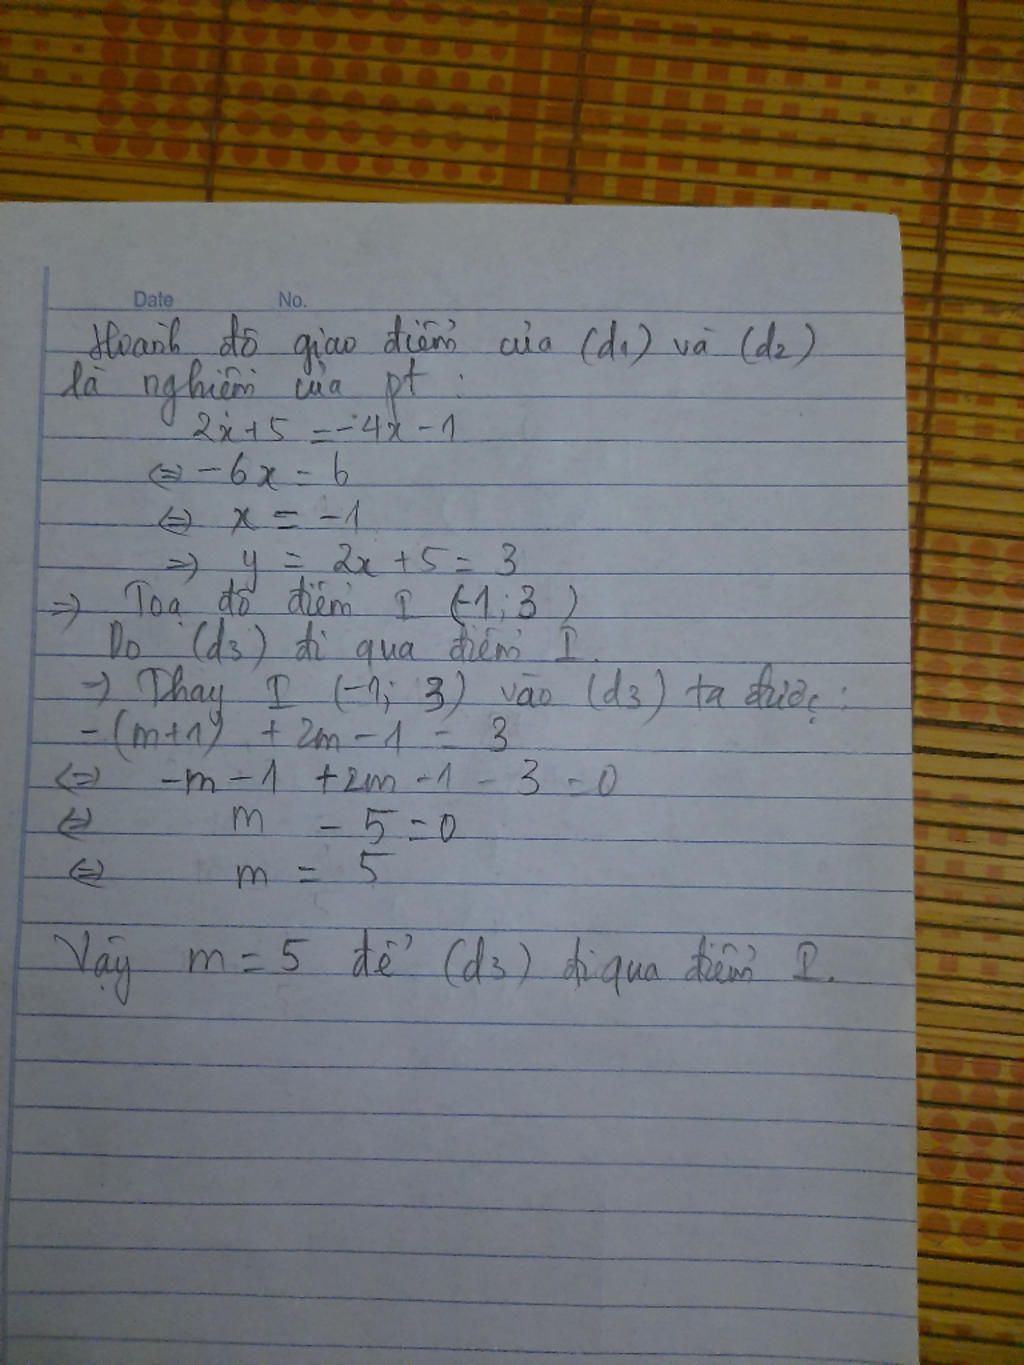 Date No.
Hoành độ giao điểm của (d1) và (d2)
là nghiệm của pt :
2x+5 = -4x - 1
⇔ -6x = 6
⇔ x = -1
⇒ y = 2x + 5 = 3
⇒ Toạ độ điểm I (-1; 3)
Do (d3) đi qua điểm I.
⇒ Thay I (-1; 3) vào (d3) ta được :
-(m+1) + 2m - 1 = 3
⇔ -m - 1 + 2m - 1 - 3 = 0
⇔ m - 5 = 0
⇔ m = 5
Vậy m = 5 để (d3) đi qua điểm I.